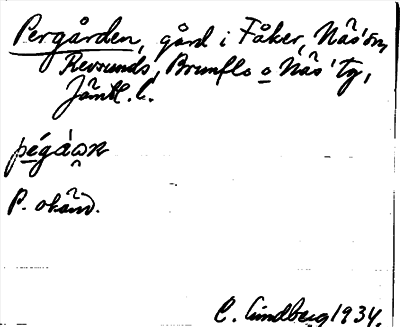 Pergården, gård i Fåker, Näs' sn,
Revsunds, Brunflo o Näs' tg,
Jämtl. l.
pégáɷn
P. okänd.
C. Lindberg 1934.